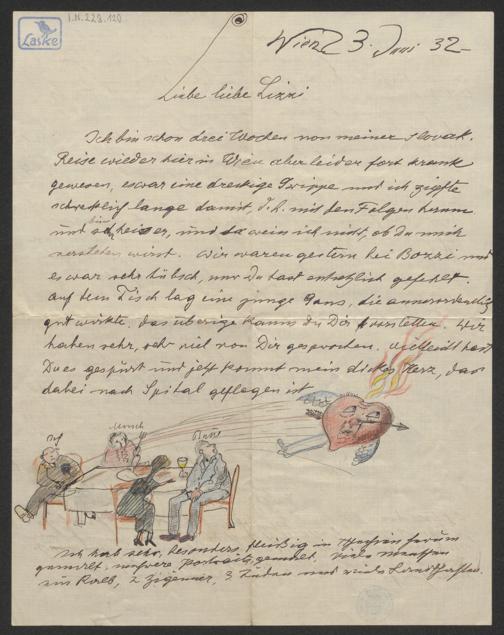 I.N. 228.120
Laske
Wien 3. Juni 32
Liebe liebe Lizzi
Ich bin schon drei Wochen von meiner slovak.
Reise wieder hier in Wien aber leider fort krank
gewesen, es war eine dreckige Grippe und ich
schrecklich lange damit, d.h. mit den Folgen herum
und bin heiser, und da weiss ich nicht, ob Du mich
verstehen wirst. Wir waren gestern bei Bozzi und
es war sehr hübsch, nur Du hast entsetzlich gefehlt.
Auf dem Tisch lag eine junge Gans, die ausserordentlich
gut wirkte, das übrige kannst du Dir vorstellen. Wir
haben sehr, sehr viel von Dir gesprochen. Vielleicht hast
Du es gespürt und jetzt kommt mein dickes Herz, das
dabei nach Spital geflogen ist
Ich hab sehr, besonders fleißig in herum
gemalt, mehrere Porträts gemalt. Viele Menschen
ein Kalb, 2 Zigeuner, 3 Juden und viele Landschaften.